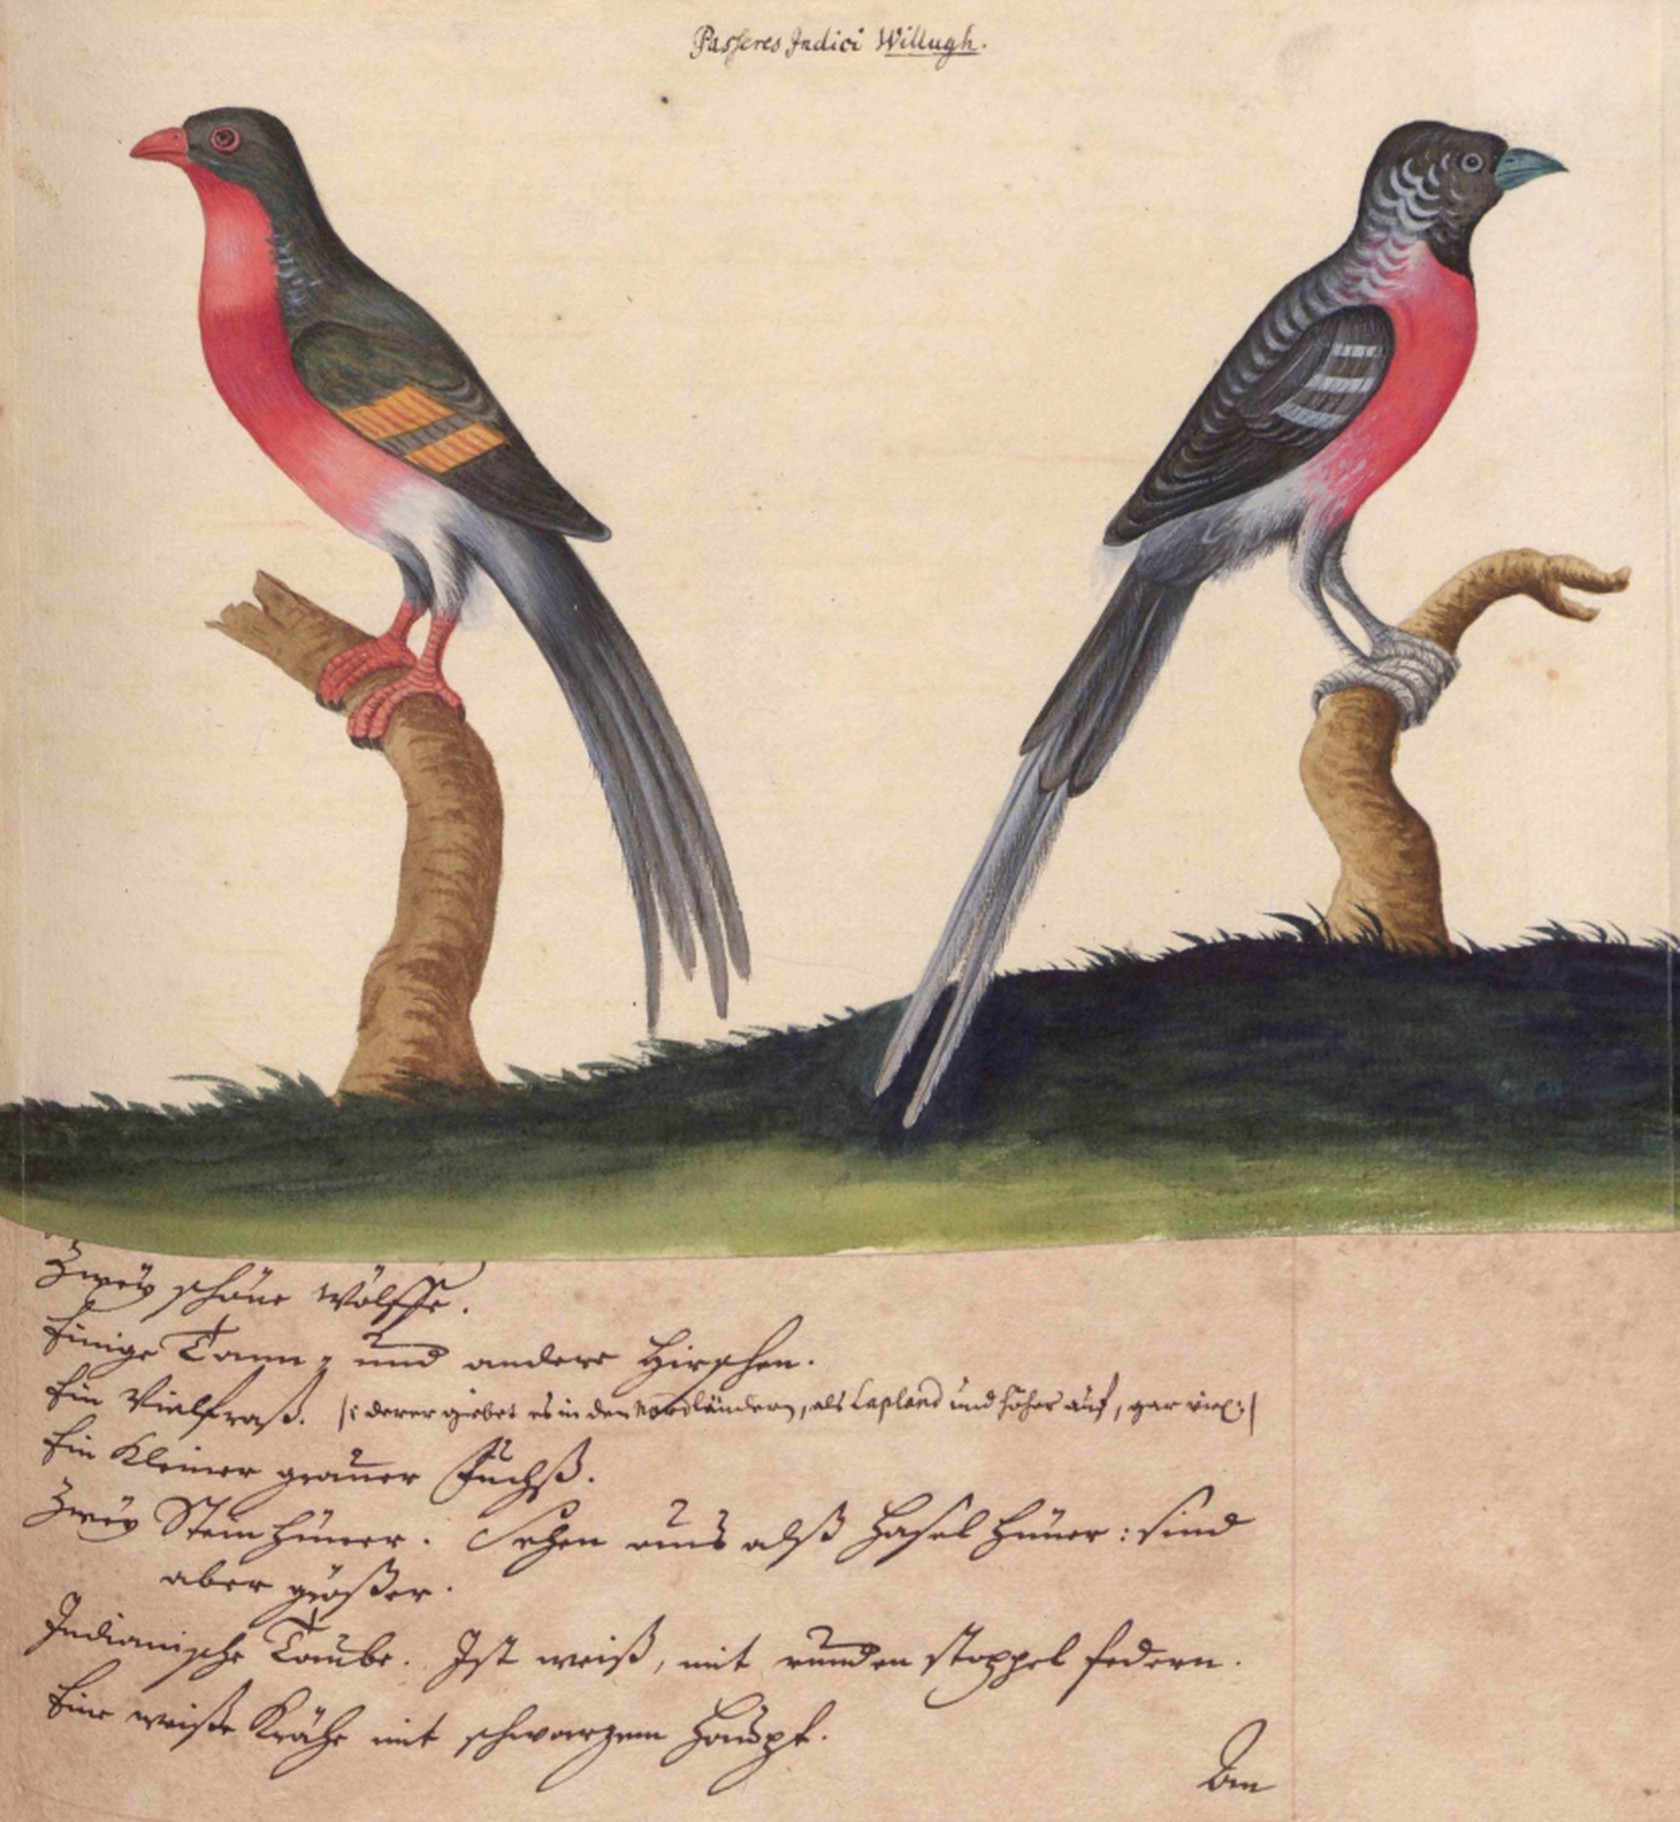 Passeres Indici Willugh.
Zweÿ schöne Wölffe.
Einige Tann- und andere Hirschen.
Ein Vielfraß. |: derer giebet es in den Nordländern, als Lapland und höher auf, gar viel :|
Ein Kleiner grauer Fuchß.
Zweÿ Steinhüner. Sehen aus alß Hasel Hüner: sind
aber größer.
Indianische Taube. Ist weiß, mit runden stoppel federn.
Eine weiße Krähe mit schwarzem Haupt.